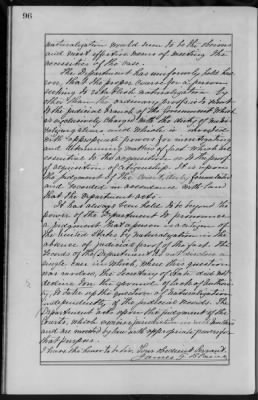 96
naturalization would seem to be the obvious
and most effective means of meeting the
necessities of the case.
The Department has uniformly held how-
ever, that the proper course for a person
seeking to establish naturalization by
other than the ordinary proof, is to resort
to the judicial branch of the Government which
is exclusively charged with the duty of natu-
ralizing aliens and which is invested
with the appropriate powers for investigating
and determining matters of fact which are
essential to the acquisition or to the proof
of acquisition of citizenship. It is upon
the judgment of the Courts formulated
and recorded in accordance with law
that the Department acts.
It has always been held to be beyond the
power of the Department to pronounce
a judgment that a person is a citizen of
the United States by naturalization in the
absence of judicial proof of the fact. The
records of the Department do not disclose a
single case in which, where this question
was involved, the Secretary of State did not
decline on the ground of lack of authori-
ty, to take up the question of naturalization
independently of the judicial records. The
Department acts upon the judgment of the
Courts, which exercise jurisdiction in the matter
and are invested by law with appropriate powers for
that purpose.
I have the honor to be Sir, Your obedient Servant,
James G. Blaine